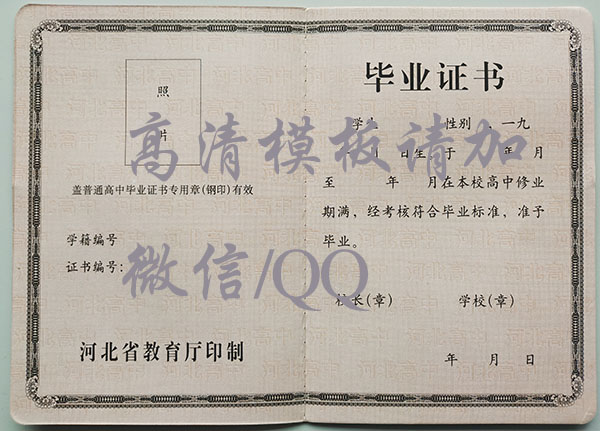 照
片
盖普通高中毕业证书专用章(钢印)有效
学籍编号
证书编号:
河北省教育厅印制
毕业证书
学生 性别 、一九
月 日生,于 年 月
至 年 月在本校高中修业
期满,经考核符合毕业标准,准予
毕业。
校长(章) 学校(章)
年 月 日
高清模板请加
微信/QQ